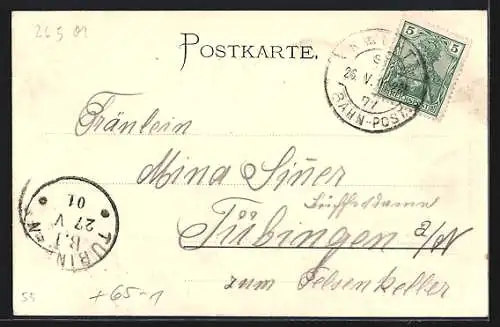 26 5 01
POSTKARTE.
5 5
26 V.
BAHN-POST
Fräulein
Mina Siner
Buffetdame
Tübingen a/N
zum Felsenkeller
TÜBINGEN
27 V
01
55
+65-1